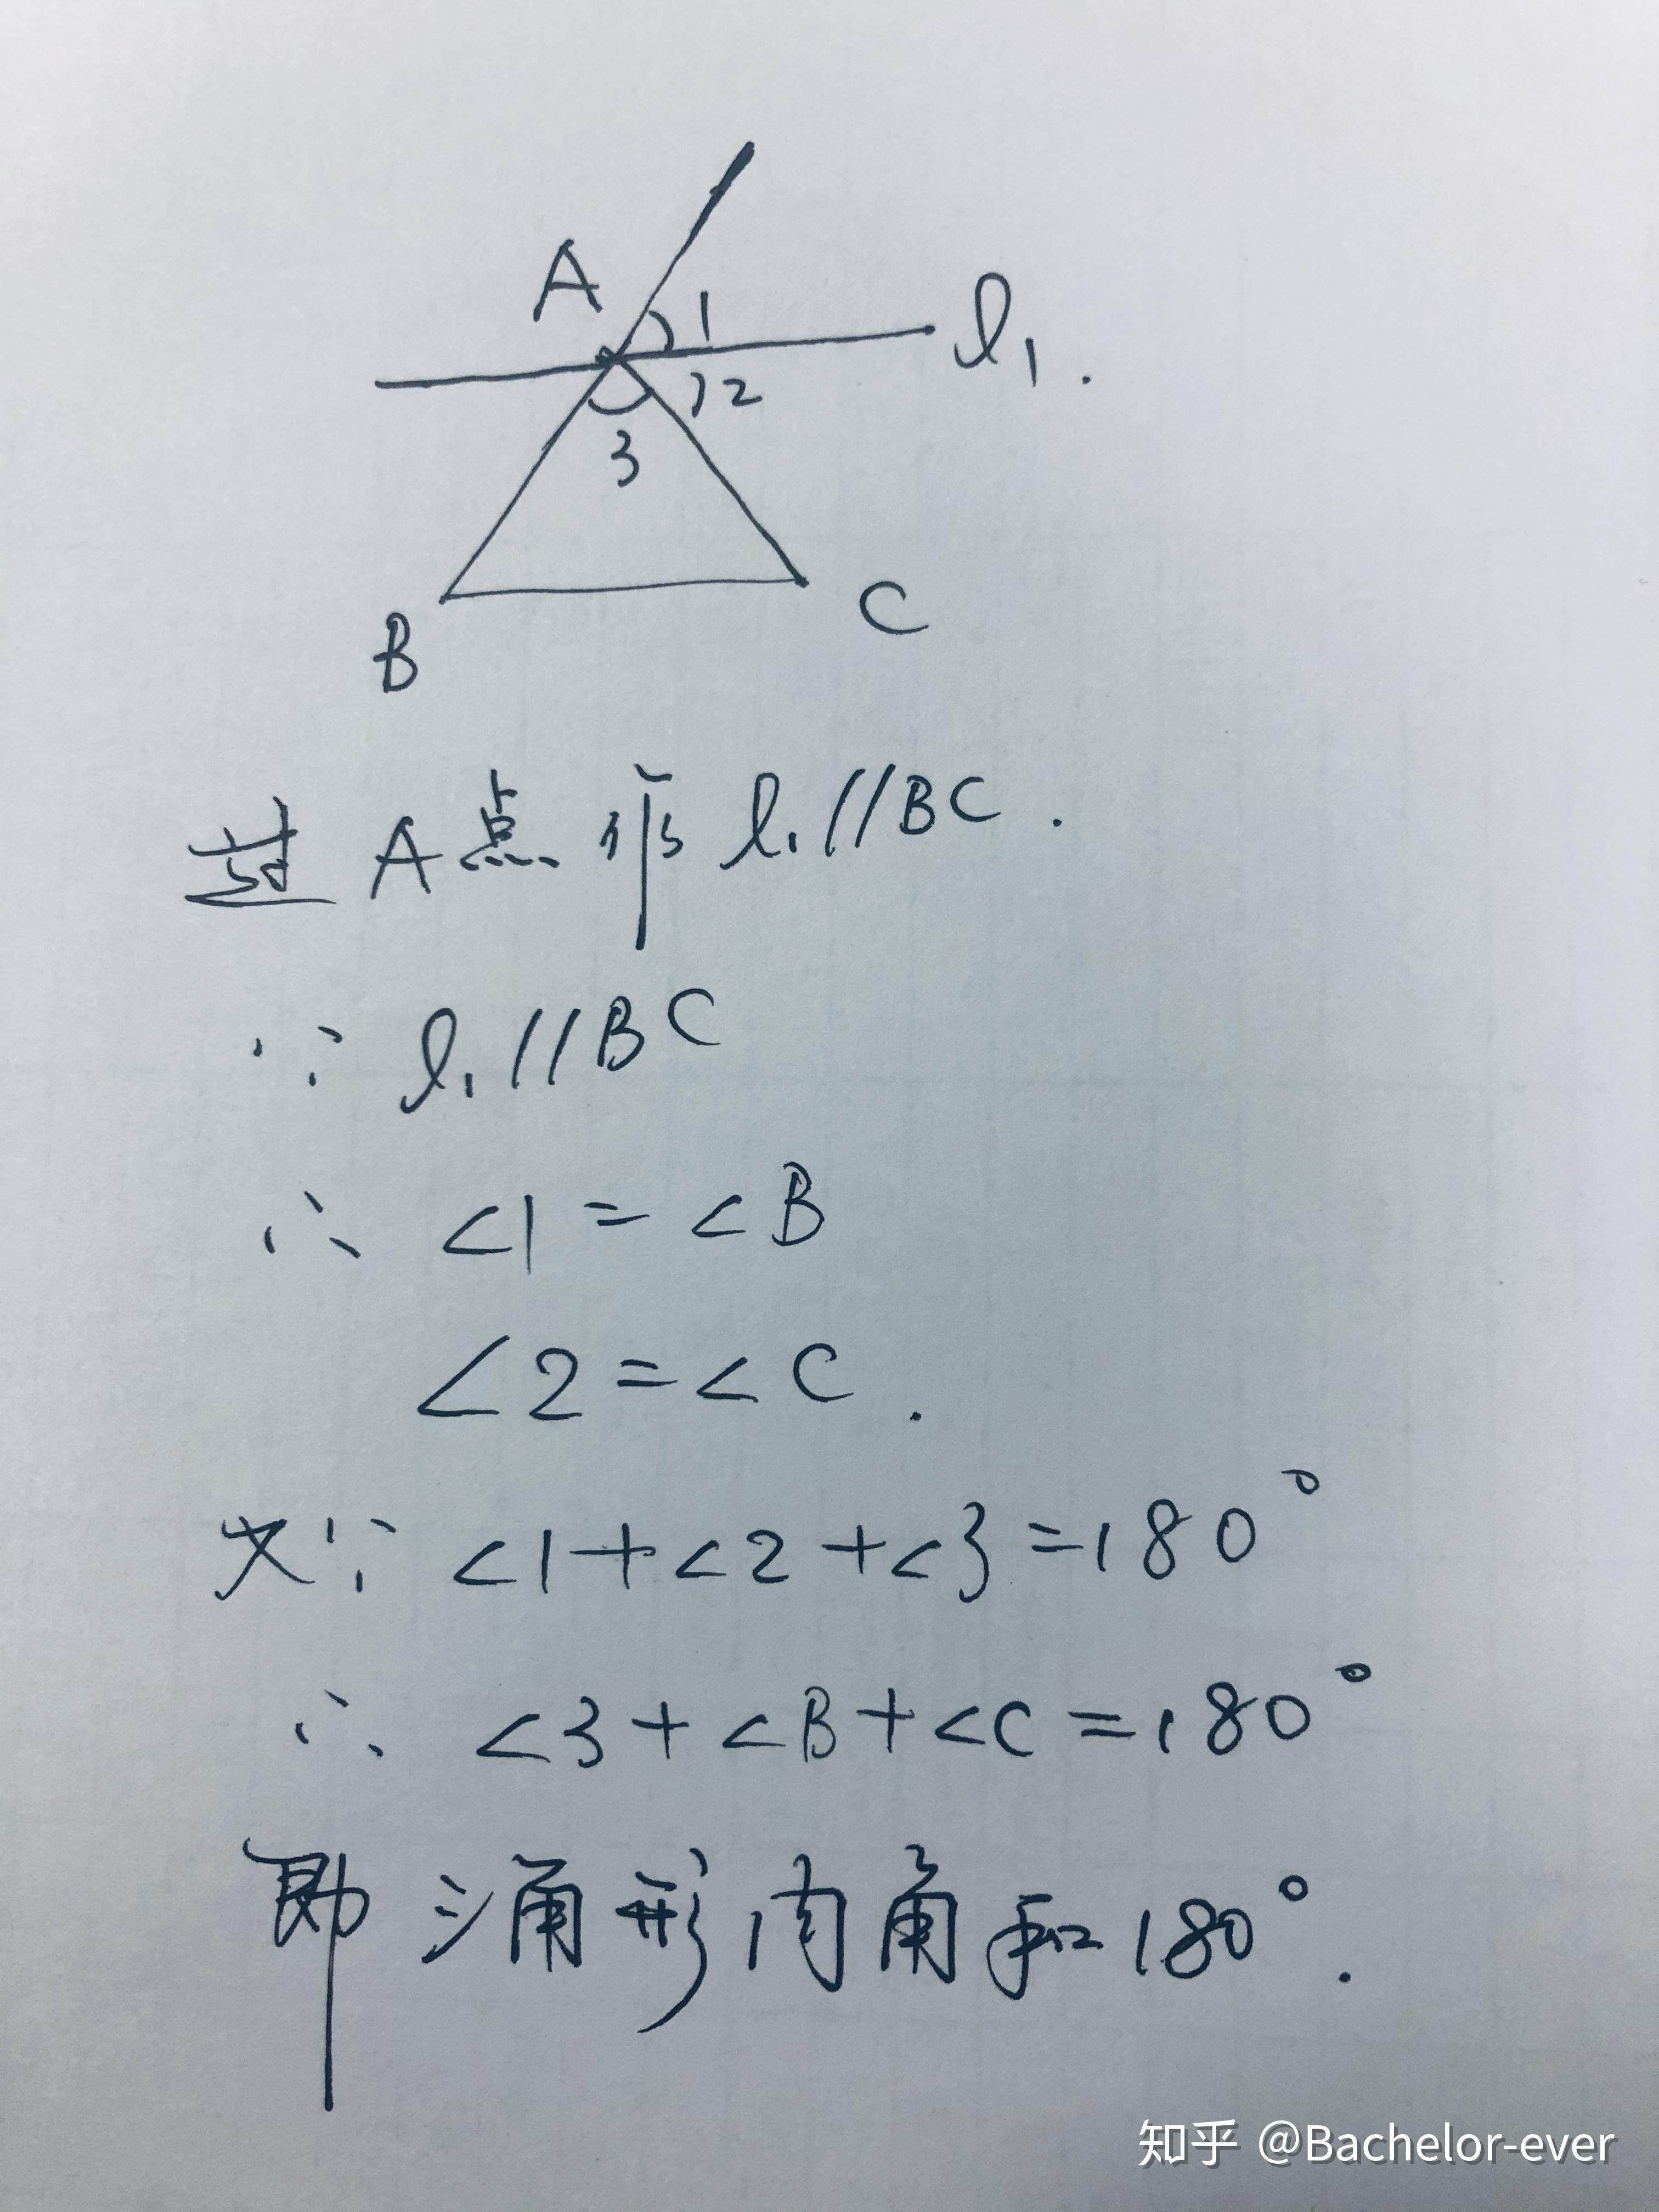 A
1
l₁.
2
3
B
C
过A点作l₁//BC.
∵ l₁//BC
∴ ∠1=∠B
∠2=∠C.
又∵ ∠1+∠2+∠3=180°
∴ ∠3+∠B+∠C=180°
即三角形内角和180°.
知乎 @Bachelor-ever